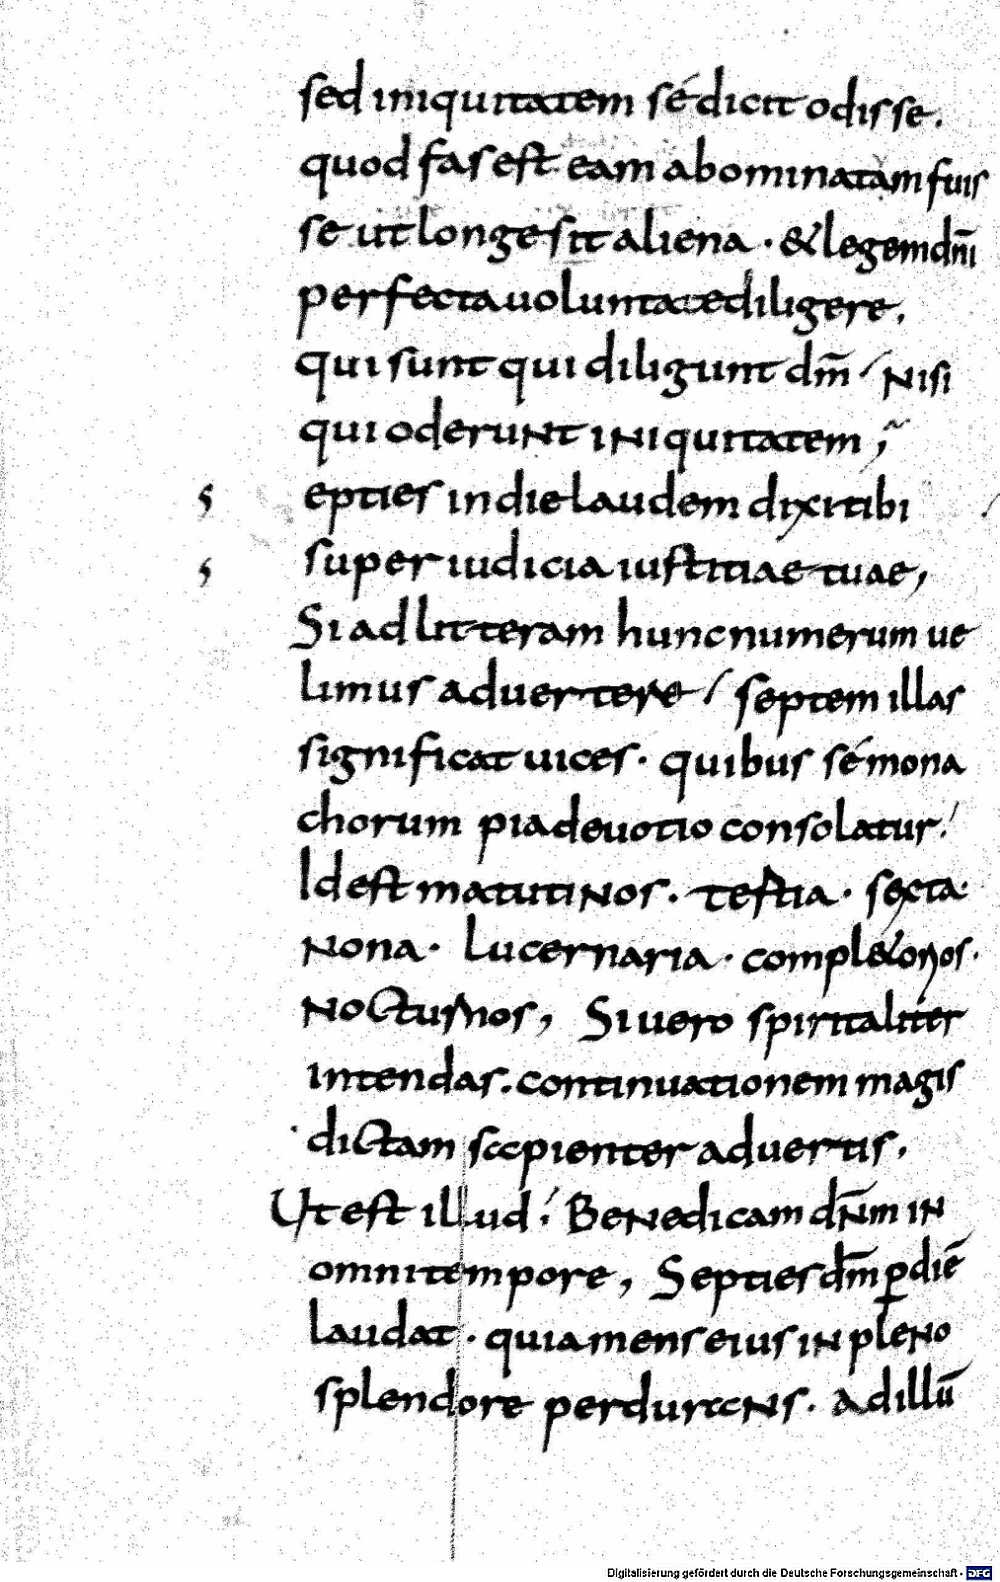 sed iniquitatem sé dicit odisse.
quod fas est eam abominatam fuis
se ut longe sit aliena · & legem dn̄i
perfecta uoluntate diligere.
qui sunt qui diligunt dm̄ / Nisi
qui oderuNt iNiquitatem ;~
epties in die laudem dixi tibi
super iudicia iustitiae tuae,
Si ad litteram hunc numerum ue
limus aduertere / septem illas
significat uices · quibus sé mona
chorum pia deuotio consolatur /
Id est matutiNos · testia · sexta ·
Nona · Lucernaria · completorios ·
Nocturnos, Si uero spiritaliter
intendas. continuationem magis
dictam sapienter aduertis.
Ut est illud / BeNedicam dN̄m iN
omni tempore, Septies dm̄ p̱ diē
laudat · quia mens eius iN pleNo
splendore perduraNs · ad illū
Digitalisierung gefördert durch die Deutsche Forschungsgemeinschaft - DFG